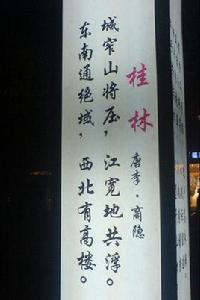 桂林
唐李·商隐
城窄山将压，江宽地共浮。
东南通绝域，西北有高楼。